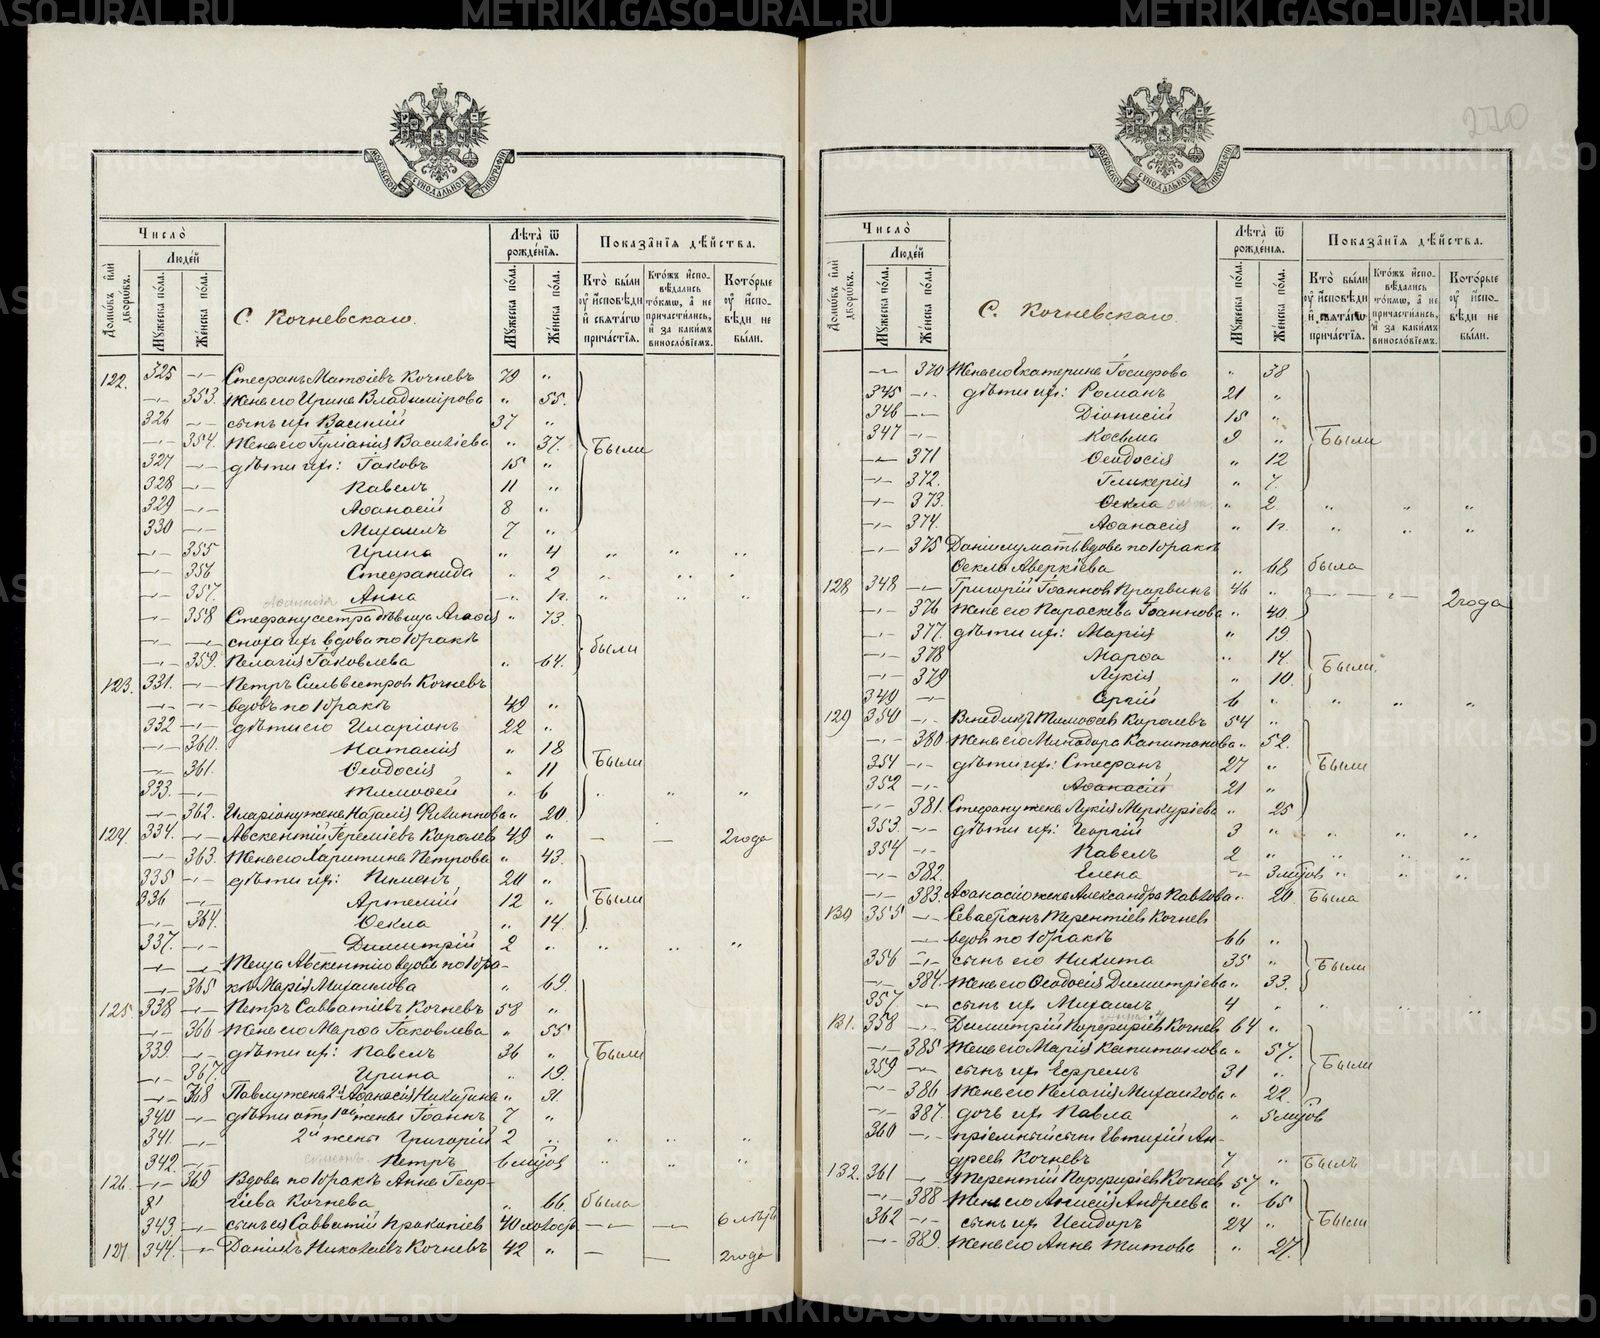 METRIKI.GASO-URAL.RU
270
МОСКОВСКОЙ СУНОДАЛЬНОЙ ТИПОГРАФІИ
Число̀
Людей
Домѡвъ или дворѡвъ.
Мужеска пола.
Женска пола.
С. Кочневскаго.
Лѣта̀ ѿ рожденїѧ.
Мужеска пола.
Женска пола.
Показанїѧ дѣйства.
Кто̀ были ᲂу̓ исповѣди и свѧтагѡ причастїѧ.
Ктожъ исповѣдались токмѡ, а не причастились, и за какимъ винословїемъ.
Которые ᲂу̓ исповѣди не были.
122. 325 -"- Стефанъ Матѳіевъ Кочневъ 79 "
-"- 353. Жена его Ирина Владимірова " 55.
326 -"- сынъ ихъ Василій 37 "
-"- 354. Жена его Іуліанія Васильева " 37. Были
327 -"- дѣти ихъ: Іаковъ 15 "
328 -"- Павелъ 11 "
329 -"- Аѳанасій 8 "
330 -"- Михаилъ 7 "
-"- 355 Ирина " 4 " " "
-"- 356 Стефанида " 2 " " "
-"- 357. Анна -"- 1г. " " "
-"- 358 Стефану сестра дѣвица Агаѳія " 73.
-"- -"- сноха ихъ вдова по 1 бракѣ были
-"- 359. Пелагія Іаковлева " 64.
123. 331. -"- Петръ Сильвестровъ Кочневъ
-"- -"- вдовъ по 1 бракѣ 49 "
332 -"- дѣти его Иларіонъ 22 "
-"- 360. Наталія " 18
-"- 361. Ѳеодосія " 11 Были
333. -"- Тимоѳей " 6 " " "
-"- 362. Иларіону жена Наталія Филиппова " 20.
124. 334. -"- Авксентій Іереміевъ Королевъ 49 " — — 2 года
-"- 363. Жена его Харитина Петрова " 43.
335 -"- дѣти ихъ: Пименъ 20 "
336 -"- Артемій 12 " Были
-"- 364. Ѳекла " 14.
337. -"- Димитрій 2 " " " "
-"- -"- Теща Авксентію вдова по 1 бра-
-"- 365 кѣ Марія Михаилова " 69.
125. 338 -"- Петръ Савватіевъ Кочневъ 58 "
-"- 366 Жена его Марѳа Іаковлева " 55
339. -"- дѣти ихъ: Павелъ 36 " Были
-"- 367. Ирина " 19.
-"- 368 Павлу жена 2я Аѳанасія Никитина " 31.
340 -"- дѣти отъ 1ой жены Іоаннъ 7 "
341. -"- 2й жены Григорій 2 " " " "
342. -"- Петръ 6 мцов " " "
126. -"- 369 Вдова по 1 бракѣ Анна Геор-
гіева Кочнева " 66. была
343. -"- сынъ ея Савватій Прокопіевъ 40 холостъ -"- — 6 лѣтъ
127. 344. -"- Даніилъ Николаевъ Кочневъ 42 " — — 2 года
Число̀
Людей
Домѡвъ или дворѡвъ.
Мужеска пола.
Женска пола.
С. Кочневскаго
Лѣта̀ ѿ рожденїѧ.
Мужеска пола.
Женска пола.
Показанїѧ дѣйства.
Кто̀ были ᲂу̓ исповѣди и свѧтагѡ причастїѧ.
Ктожъ исповѣдались токмѡ, а не причастились, и за какимъ винословїемъ.
Которые ᲂу̓ исповѣди не были.
-"- 370 Жена его Екатерина Іосифова " 38
345 -"- дѣти ихъ: Романъ 21 "
346 -"- Діонисій 15 "
347 -"- Косьма 9 " Были
-"- 371 Ѳеодосія " 12
-"- 372. Гликерія " 7.
-"- 373. Ѳекла " 2. " " "
-"- 374. Аѳанасія " 1г. " " "
-"- 375 Даніилу мать вдова по 1 бракѣ
Ѳекла Аверкіева " 68 была
128 348 -"- Григорій Іоанновъ 46 " -"- -"- 2 года
-"- 376 Жена его Параскева Іоаннова " 40.
-"- 377. дѣти ихъ: Марія " 19
-"- 378 Марѳа " 14. Были.
-"- 379 Лукія " 10.
349 -"- Сергій 6 " " " "
129 350 -"- Венедиктъ Тимоѳеевъ Королевъ 54 "
-"- 380. Жена его Минодора Капитонова " 52.
351 -"- дѣти ихъ: Стефанъ 27 " Были
352 -"- Аѳанасій 21 "
-"- 381. Стефану жена Лукія Меркуріева " 25
353. -"- дѣти ихъ: Георгій 3 " " " "
354 -"- Павелъ 2 " " " "
-"- 382. Елена -"- 3 мцов " " "
-"- 383. Аѳанасію жена Александра Павлова " 20. Была
130 355 -"- Севастіанъ Терентіевъ Кочнев
-"- вдовъ по 1 бракѣ 66 "
356 -"- сынъ его Никита 35 " Были
-"- 384. Жена его Ѳеодосія Димитріева " 33.
357. -"- сынъ ихъ Михаилъ 4 " " "
131. 358 -"- Димитрій Порфиріевъ Кочнев 64 "
-"- 385 Жена его Марія Капитонова " 57.
359 -"- сынъ ихъ Ефремъ 31 " Были
-"- 386. Жена его Пелагія Михаилова " 22.
-"- 387. дочь ихъ Павла " 5 мцов
360 -"- пріемный сынъ Евтихій Ан-
дреевъ Кочневъ 7 " Былъ
132. 361 -"- Терентій Порфиріевъ Кочнев 57 "
-"- 388 Жена его Анисія Андреева " 65
362 -"- сынъ ихъ Исидоръ 24 " Были
-"- 389. Жена его Анна Титова " 27.